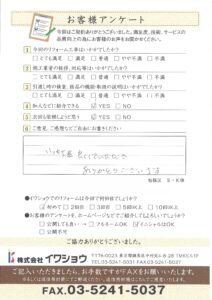 お客様アンケート
今回はご契約ありがとうございました。満足度、技術、サービスの
品質向上の為にお客様のお声をお聞かせください。
1 今回のリフォーム工事はいかがでしたか?
□とても満足 □満足 □普通 □やや不満 □不満
2
□とても満足 □満足 □普通 □やや不満 □不満
3
□とても満足 □満足 □普通 □やや不満 □不満
4 知人などに紹介できる YES □NO
5 次回も依頼しようと思う YES □NO
6 ご意見、ご感想などご自由にお書きください
ありがとうございます
板橋区 S・K様
●イワショウでのリフォームは今回で何回目ですか?
初めて □2回目 □3回目 □5回以上 □10回以上
●お客様のアンケートを、ホームページなどでご紹介してもよろしいでしょうか?
□公開しても良い → □フルネームOK イニシャルOK
□公開不可
ご協力ありがとうございました。
株式会社イワショウ
TEL.03-5241-5031 FAX.03-5241-5037
ご記入いただきましたら、お手数ですがFAXをお願いいたします。
FAX.03-5241-5037